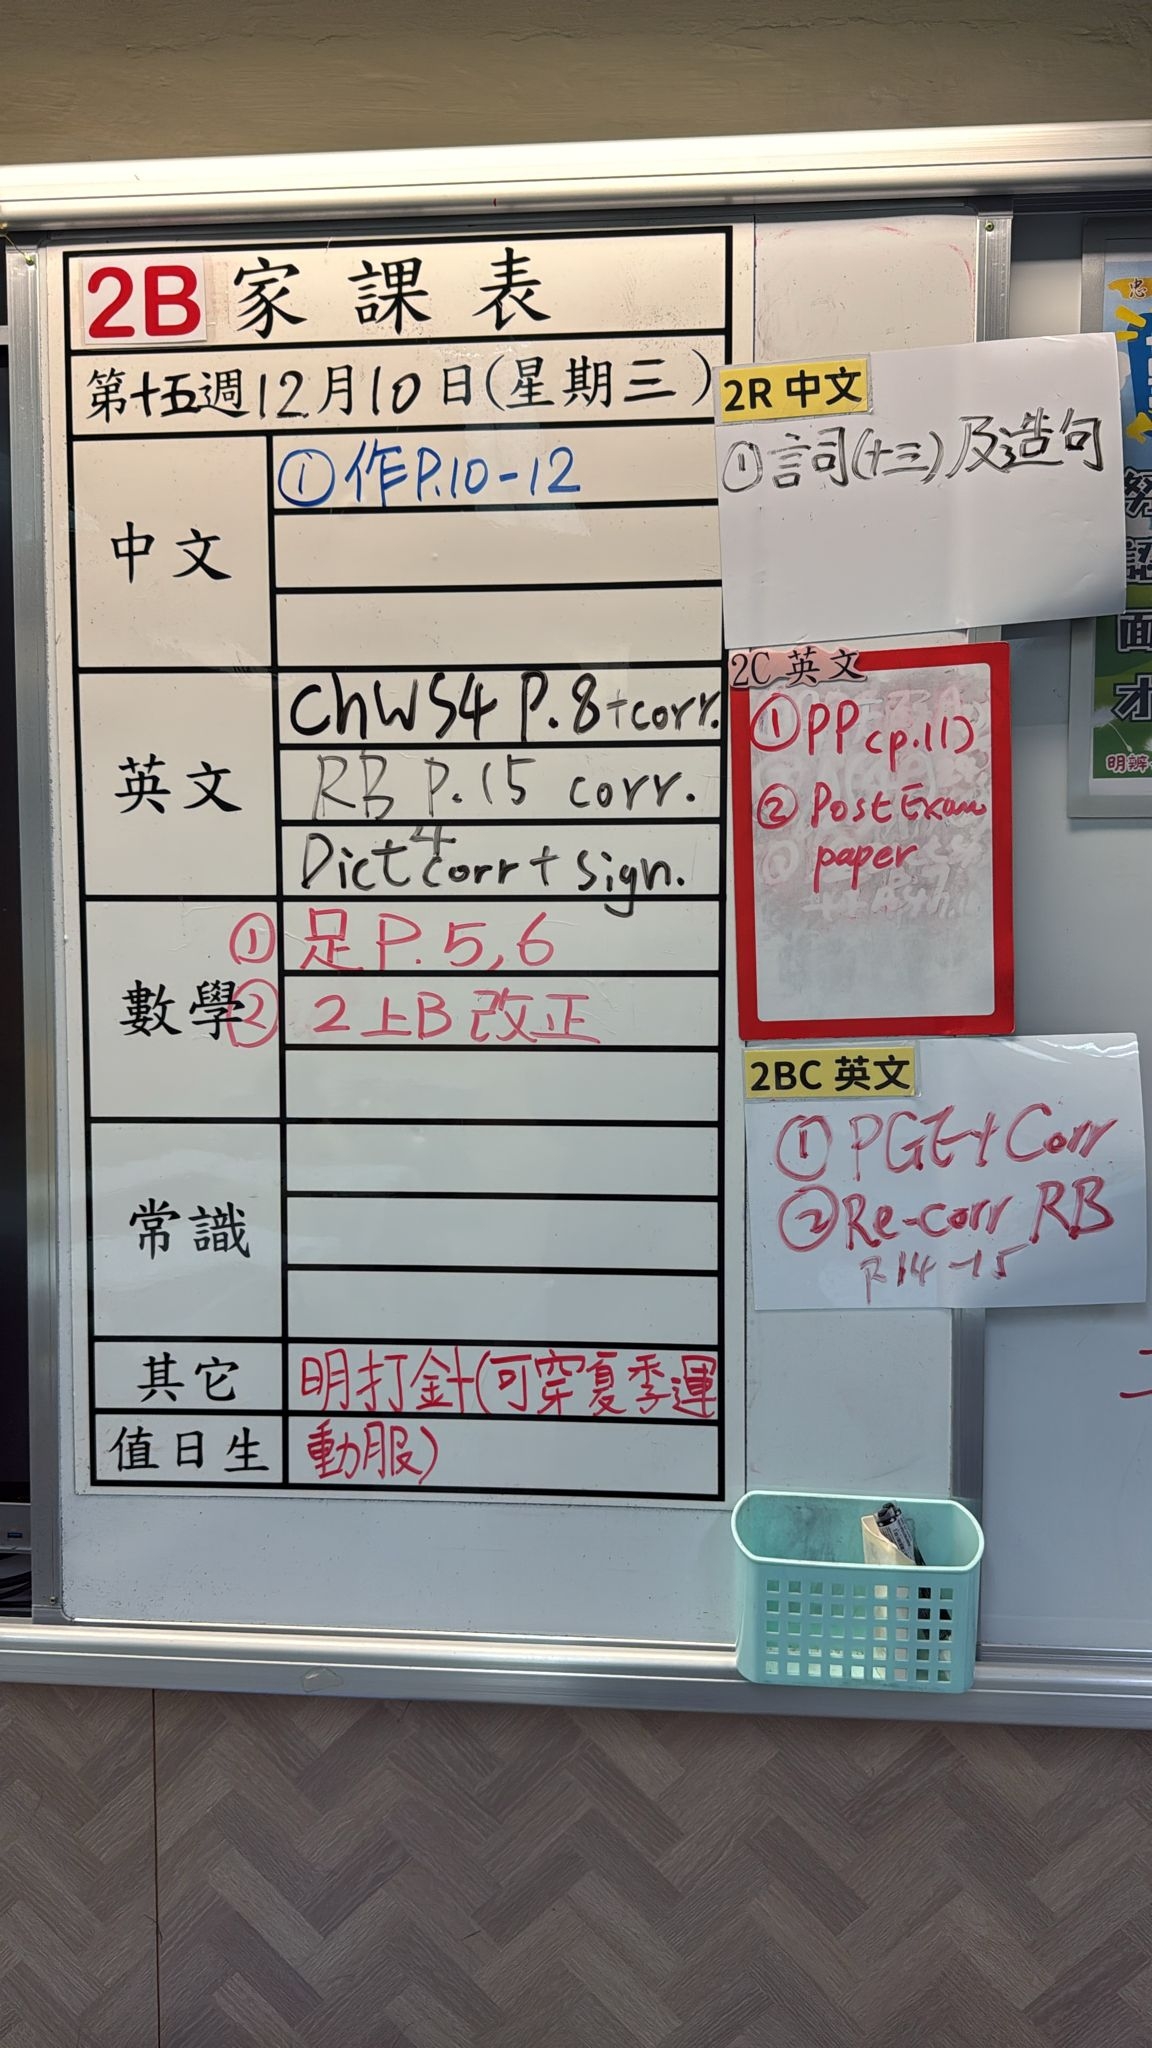 2B 家課表
第十五週12月10日(星期三)
中文
①作P.10-12
英文
ChWS4 P.8+corr.
RB P.15 corr.
Dict4 corr+sign.
數學
① 足P.5,6
② 2上B改正
常識
其它
明打針(可穿夏季運
值日生
動服)
2R 中文
①言司(十三)及造句
2C 英文
①PP(p.11)
②Post Exam
paper
2BC 英文
①PGE+Corr
②Re-corr RB
P.14-15
忠
面
才
明辨